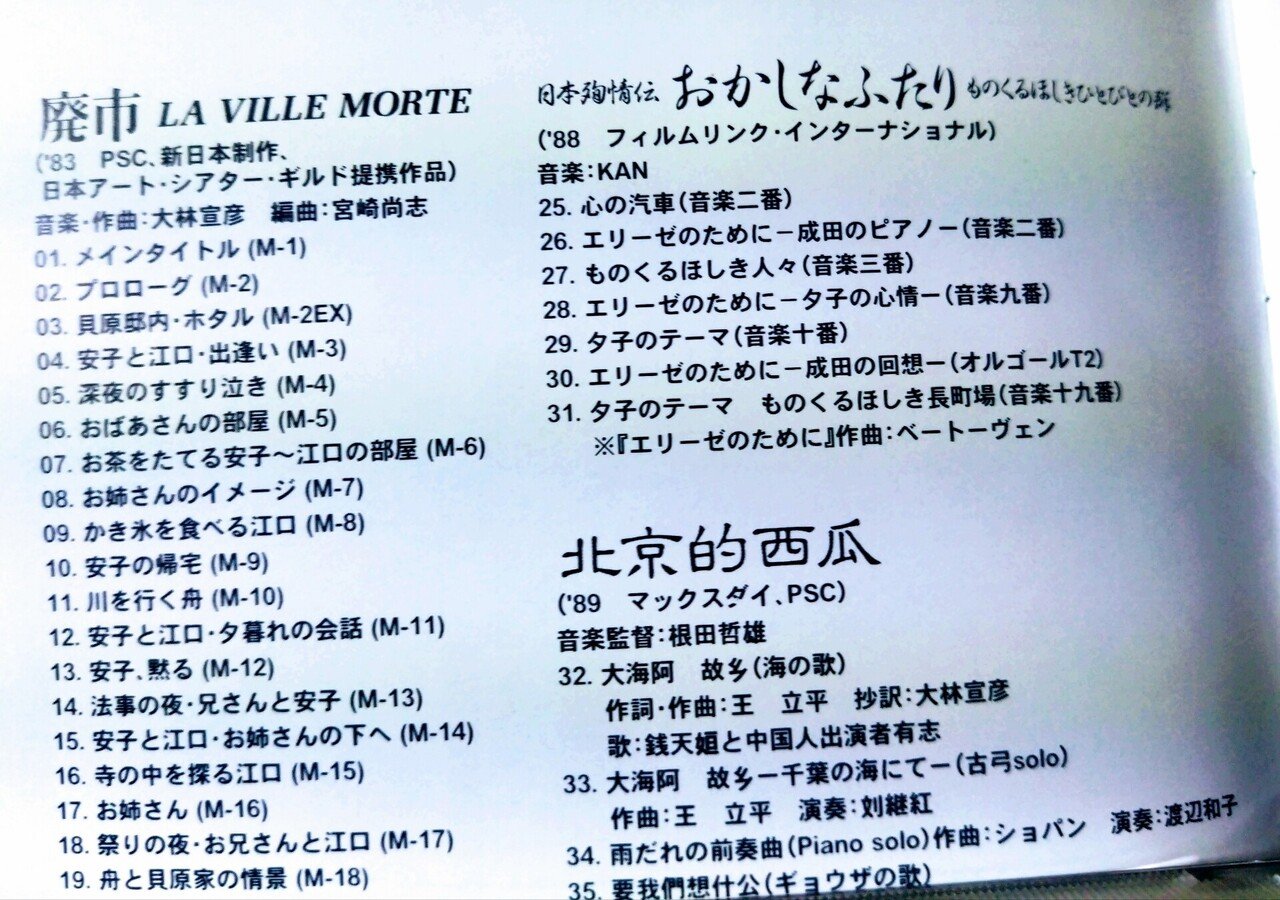 廃市 LA VILLE MORTE
('83 PSC、新日本制作、
日本アート・シアター・ギルド提携作品)
音楽・作曲:大林宣彦 編曲:宮崎尚志
01. メインタイトル (M-1)
02. プロローグ (M-2)
03. 貝原邸内・ホタル (M-2EX)
04. 安子と江口・出逢い (M-3)
05. 深夜のすすり泣き (M-4)
06. おばあさんの部屋 (M-5)
07. お茶をたてる安子〜江口の部屋 (M-6)
08. お姉さんのイメージ (M-7)
09. かき氷を食べる江口 (M-8)
10. 安子の帰宅 (M-9)
11. 川を行く舟 (M-10)
12. 安子と江口・夕暮れの会話 (M-11)
13. 安子、黙る (M-12)
14. 法事の夜・兄さんと安子 (M-13)
15. 安子と江口・お姉さんの下へ (M-14)
16. 寺の中を探る江口 (M-15)
17. お姉さん (M-16)
18. 祭りの夜・お兄さんと江口 (M-17)
19. 舟と貝原家の情景 (M-18)
日本殉情伝 おかしなふたり ものくるほしきひとびとの群
('88 フィルムリンク・インターナショナル)
音楽:KAN
25. 心の汽車(音楽二番)
26. エリーゼのために−成田のピアノ−(音楽二番)
27. ものくるほしき人々(音楽三番)
28. エリーゼのために−夕子の心情−(音楽九番)
29. 夕子のテーマ(音楽十番)
30. エリーゼのために−成田の回想−(オルゴールT2)
31. 夕子のテーマ ものくるほしき長町場(音楽十九番)
※『エリーゼのために』作曲:ベートーヴェン
北京的西瓜
('89 マックスダイ、PSC)
音楽監督:根田哲雄
32. 大海阿 故乡(海の歌)
作詞・作曲:王 立平 抄訳:大林宣彦
歌:銭天姮と中国人出演者有志
33. 大海阿 故乡−千葉の海にて−(古弓solo)
作曲:王 立平 演奏:刘継紅
34. 雨だれの前奏曲(Piano solo)作曲:ショパン 演奏:渡辺和子
35. 要我們想什公(ギョウザの歌)